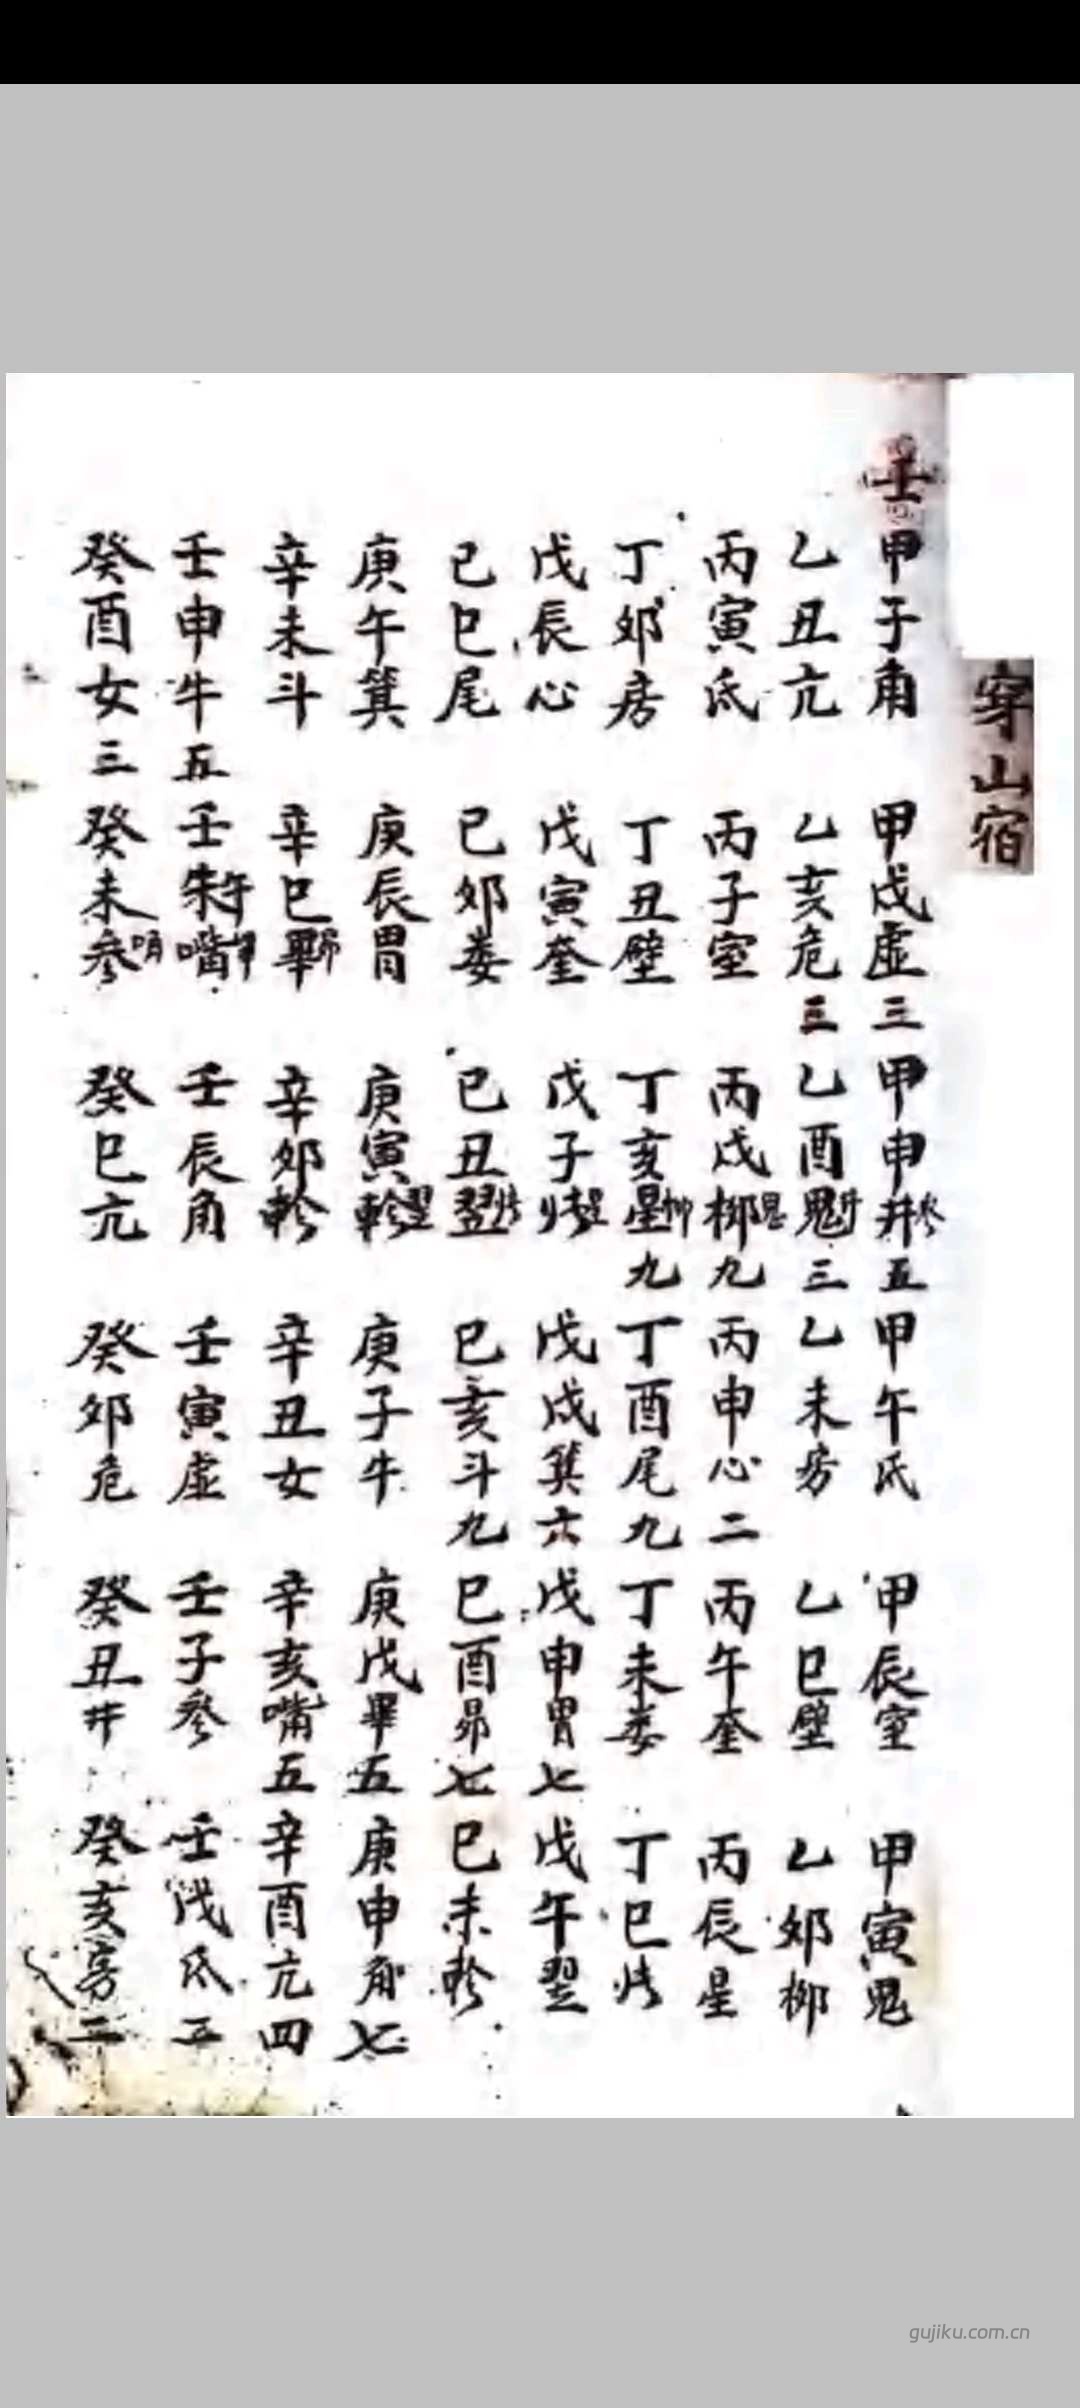 穿山宿
壬
甲子角 甲戌虛三 甲申井參五 甲午氐 甲辰室 甲寅鬼
乙丑亢 乙亥危三 乙酉鬼井三 乙未房 乙巳壁 乙卯柳
丙寅氐 丙子室 丙戌柳鬼九 丙申心二 丙午奎 丙辰星
丁卯房 丁丑壁 丁亥星柳九 丁酉尾九 丁未娄 丁巳张
戊辰心 戊寅奎 戊子张星 戊戌箕六 戊申胃七 戊午翌
己巳尾 己卯娄 己丑翌张 己亥斗九 己酉昴七 己未軫
庚午箕 庚辰胃 庚寅軫翌 庚子牛 庚戌畢五 庚申角七
辛未斗 辛巳畢昴 辛卯軫 辛丑女 辛亥嘴五 辛酉亢四
壬申牛五 壬午嘴畢 壬辰角 壬寅虛 壬子參 壬戌氐五
癸酉女三 癸未參 癸巳亢 癸卯危 癸丑井 癸亥房二
gujiku.com.cn